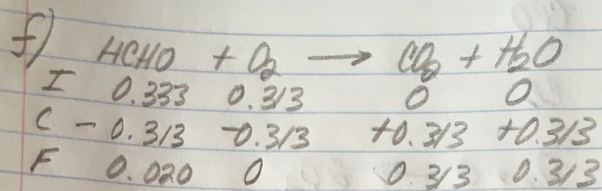 f) HCHO + O₂ → CO₂ + H₂O
I 0.333 0.313 0 0
C -0.313 -0.313 +0.313 +0.313
F 0.020 0 0.313 0.313